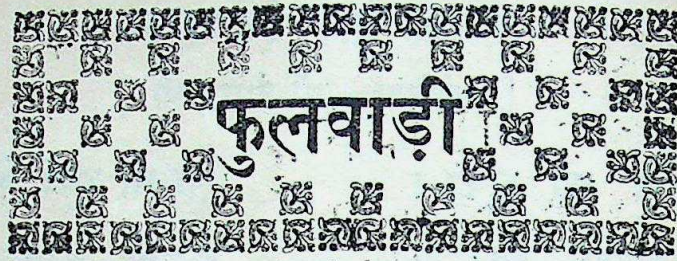 फुलवाड़ी